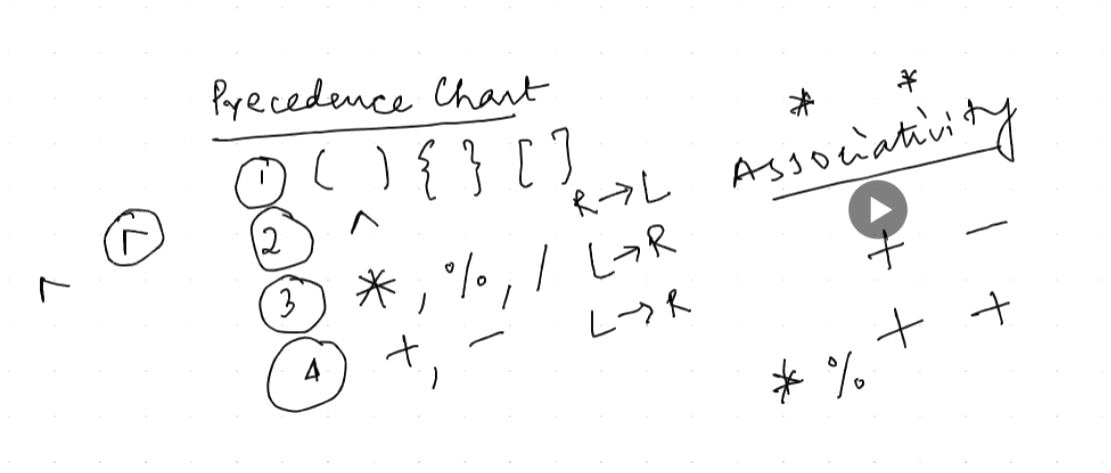 Precedence Chart
① ( ) { } [ ]
② ^ R→L
③ *, %, / L→R
④ +, - L→R
* *
Associativity
+ -
+ +
* %